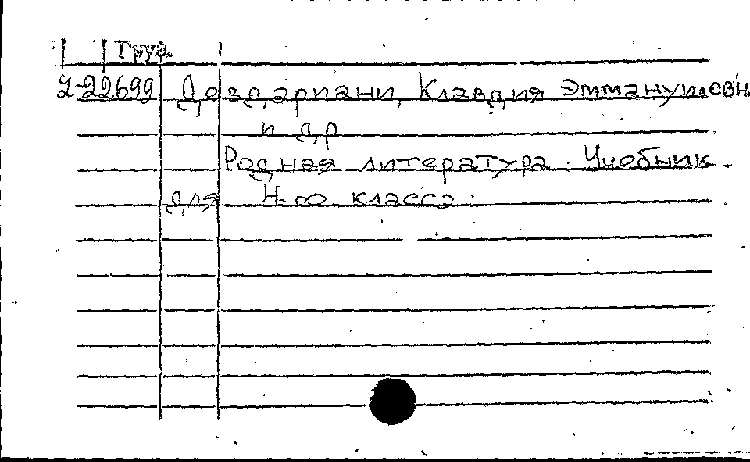 Груз.
2-22699 Дездариани, Клавдия Эммануиловн
и др
Родная литература. Учебник
для 4-го класса.